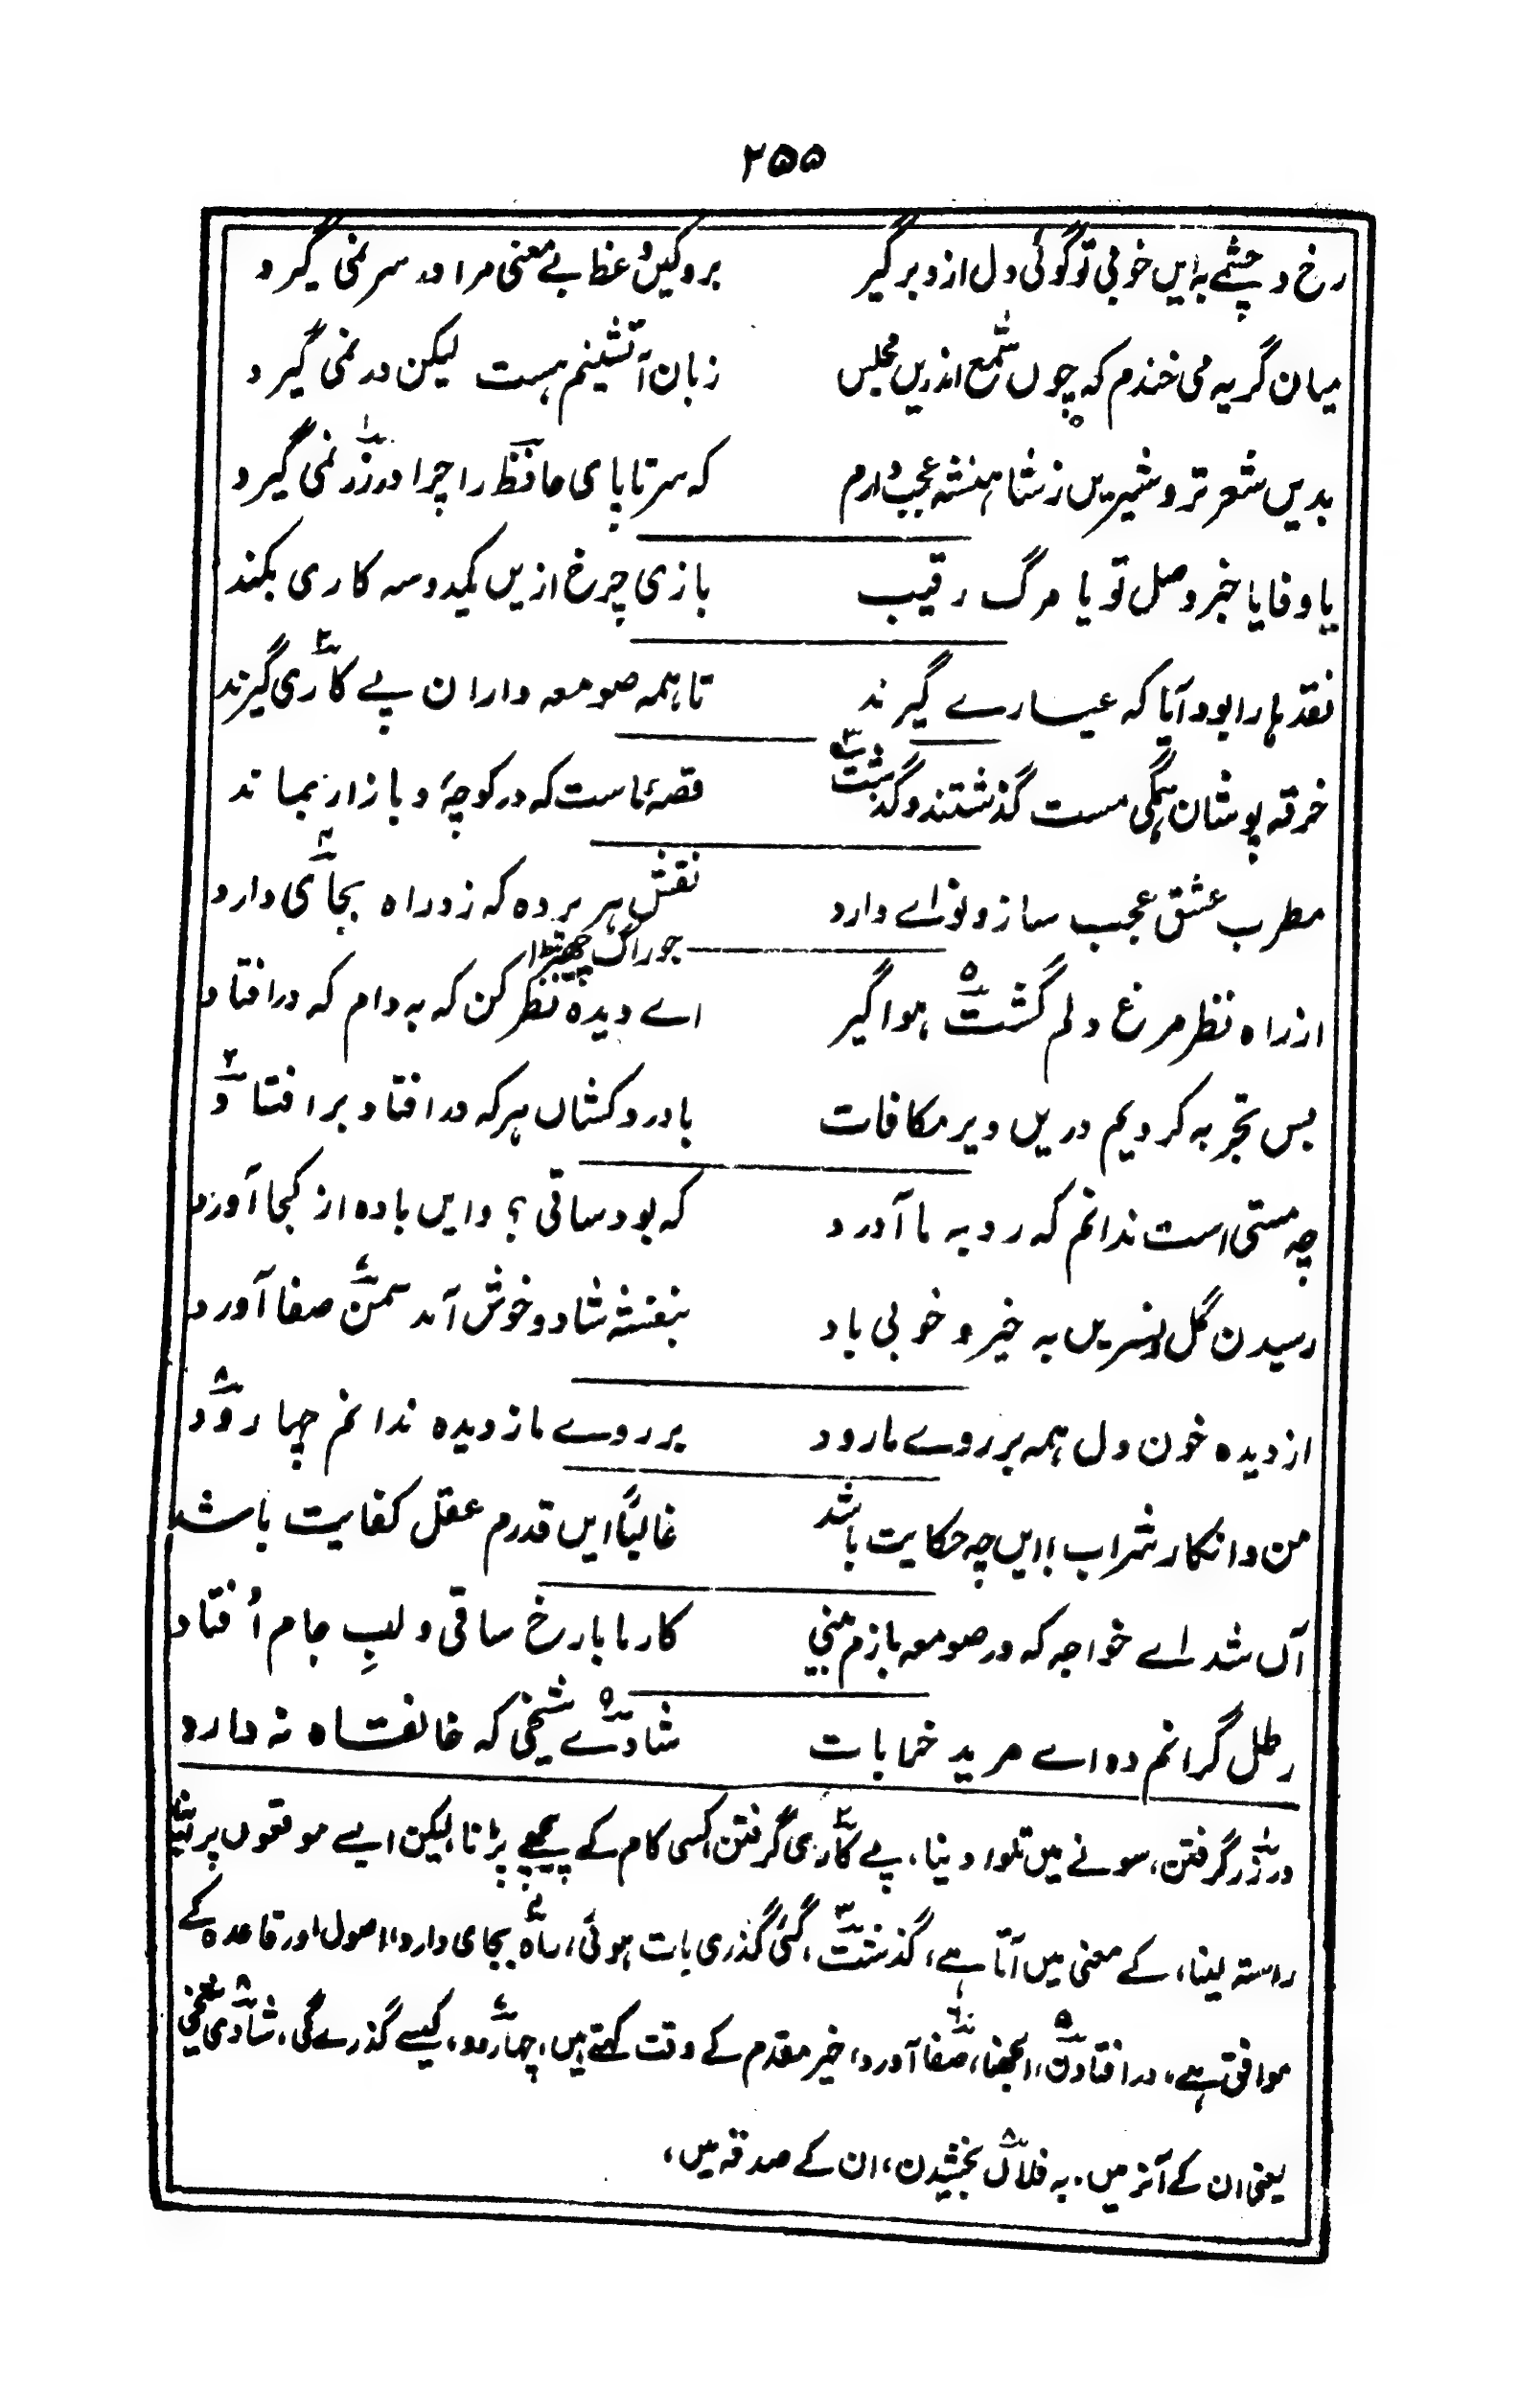 ۲۵۵
رخ و چشمے بہ ایں خوبی تو گوئی دل ازو برگیر بروکیں وعظ بے معنی مرا در سر نمی گیرد
میان گریہ می خندم کہ چوں شمع اندریں مجلس زبان آتشینم ہست لیکن در نمی گیرد
بدیں شعر تر و شیریں ز شاہنشہ عجب دارم کہ سر تا پای حافظ را چرا در زر نمی گیرد
یا وفا یا خبر وصل تو یا مرگ رقیب بازی چرخ ازیں یکدوسہ کاری بکند
نقد ہا را بود آیا کہ عیارے گیرند تا ہمہ صومعہ داران پے کاری گیرند
خرقہ پوشان ہمگی مست گذشتند و گذشت قصۂ ماست کہ در کوچۂ و بازار بماند
مطرب عشق عجب ساز و نوائے دارد نقش ہر پردہ کہ زد راہ بجای دارد
جو راگ چھیڑا
از راہ نظر مرغ دلم گشت ہوا گیر اے دیدہ نظر کن کہ بہ دام کہ در افتاد
بس تجربہ کردیم دریں دیر مکافات با درد کشاں ہر کہ در افتاد بر افتاد
چہ مستی است ندانم کہ رو بہ ما آورد کہ بود ساقی؟ و ایں بادہ از کجا آورد
رسیدن گل و نسریں بہ خیر و خوبی باد بنفشہ شاد و خوش آمد سمن صفا آورد
از دیدہ خون دل ہمہ بر روے ما رود بر روے ما ز دیدہ ندانم چہا رود
من و انکار شراب! ایں چہ حکایت باشد غالباً ایں قدرم عقل کفایت باشد
آں شد اے خواجہ کہ در صومعہ بازم بینی کار ما با رخ ساقی و لبِ جام اُفتاد
رطل گرانم دہ اے مرید خرابات شادے شیخی کہ خانقاہ نہ دارد
در زر گرفتن، سونے میں تلوا دینا، پے کاری گرفتن، کسی کام کے پیچھے پڑنا، لیکن ایسے موقعوں پر
راستہ لینا، کے معنی میں آتا ہے، گذشت، گئی گذری بات ہوئی، راہ بجای دارد، اصول اور قاعدہ کے
موافق ہے، در افتادن، الجھنا، صفا آورد، خیر مقدم کے وقت کہتے ہیں، چہا رود، کیسے گذرے گی، شادی شیخی
یعنی ان کے آنر میں. بہ فلاں بخشیدن، ان کے صدقہ میں،